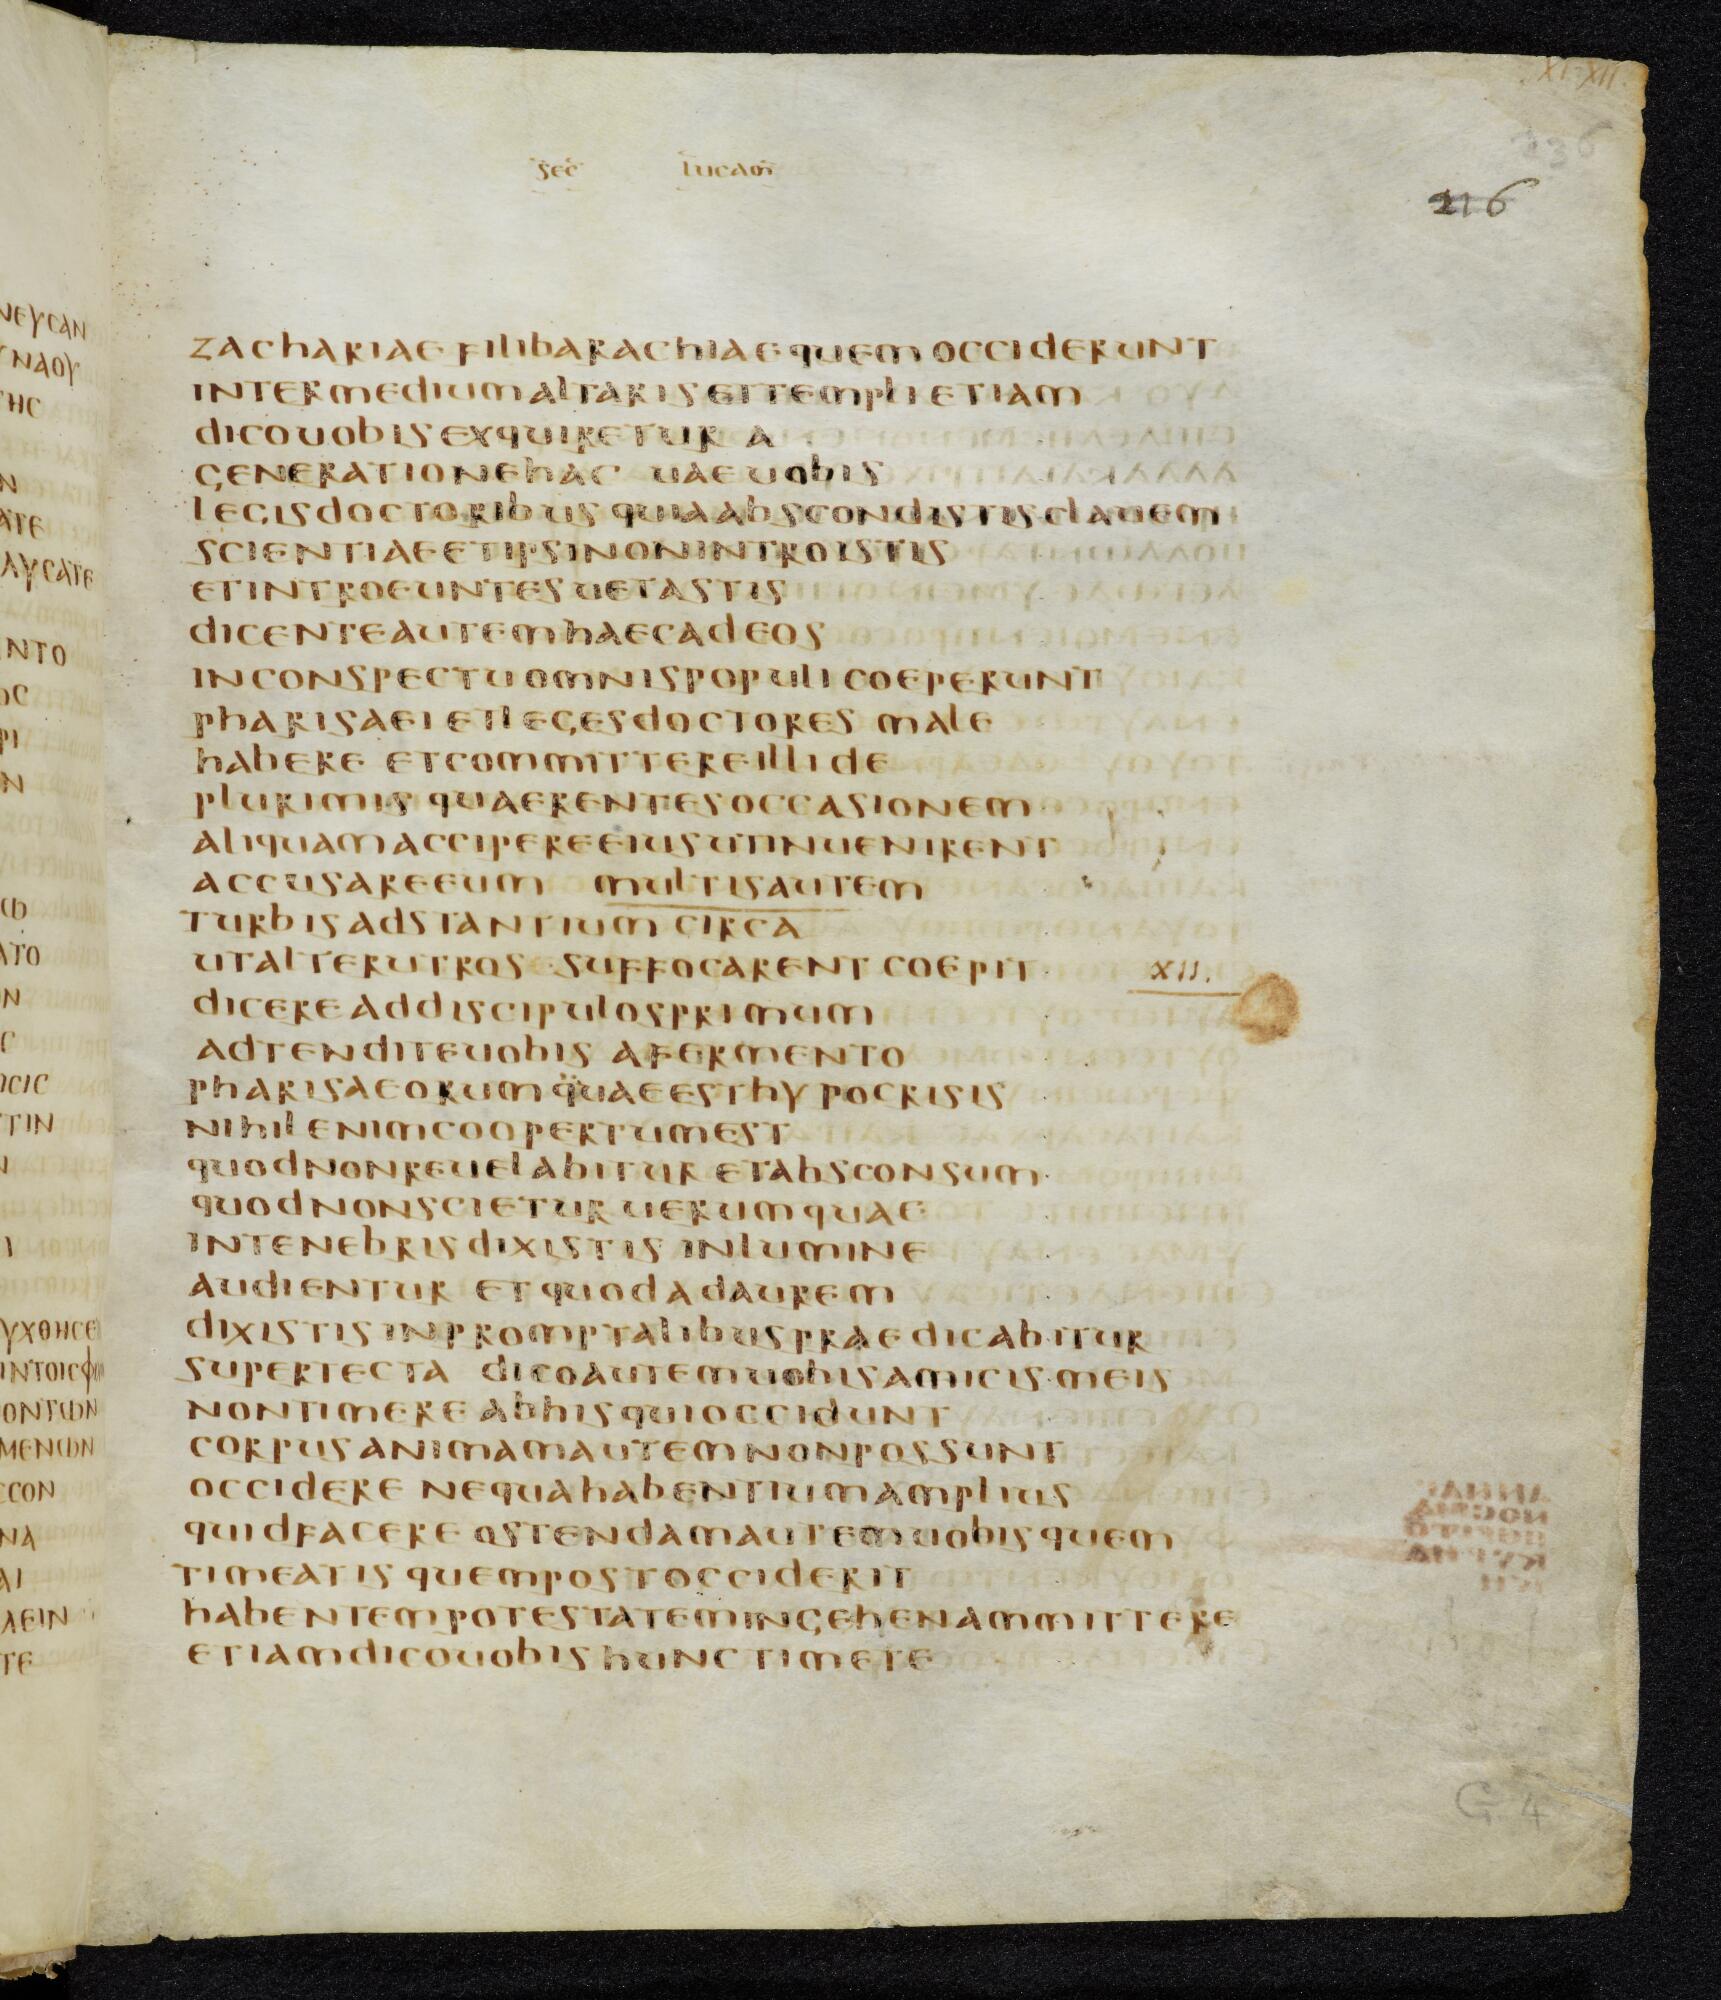 XI-XII.
236
sec lucam
216
zachariae fili barachiae quem occiderunt
inter medium altaris et templi etiam
dico uobis exquiretur a
generatione hac uae uobis
legis doctoribus quia abscondistis clauem
scientiae et ipsi non introistis
et introeuntes uetastis
dicente autem haec ad eos
in conspectu omnis populi coeperunt
pharisaei et leges doctores male
habere et committere illi de
plurimis quaerentes occasionem
aliquam accipere eius ut inuenirent
accusare eum multis autem
turbis adstantium circa
ut alterutros suffocarent coepit XII.
dicere ad discipulos primum
adtendite uobis a fermento
pharisaeorum quae est hypocrisis
nihil enim coopertum est
quod non reuelabitur et absconsum
quod non scietur uerum quae
in tenebris dixistis in lumine
audientur et quod ad aurem
dixistis in promptalibus praedicabitur
super tecta dico autem uobis amicis meis
non timere ab his qui occidunt
corpus animam autem non possunt
occidere nequa habentium amplius
quid facere ostendam autem uobis quem
timeatis quem post occiderit
habentem potestatem in gehenam mittere
etiam dico uobis hunc timete
G 4